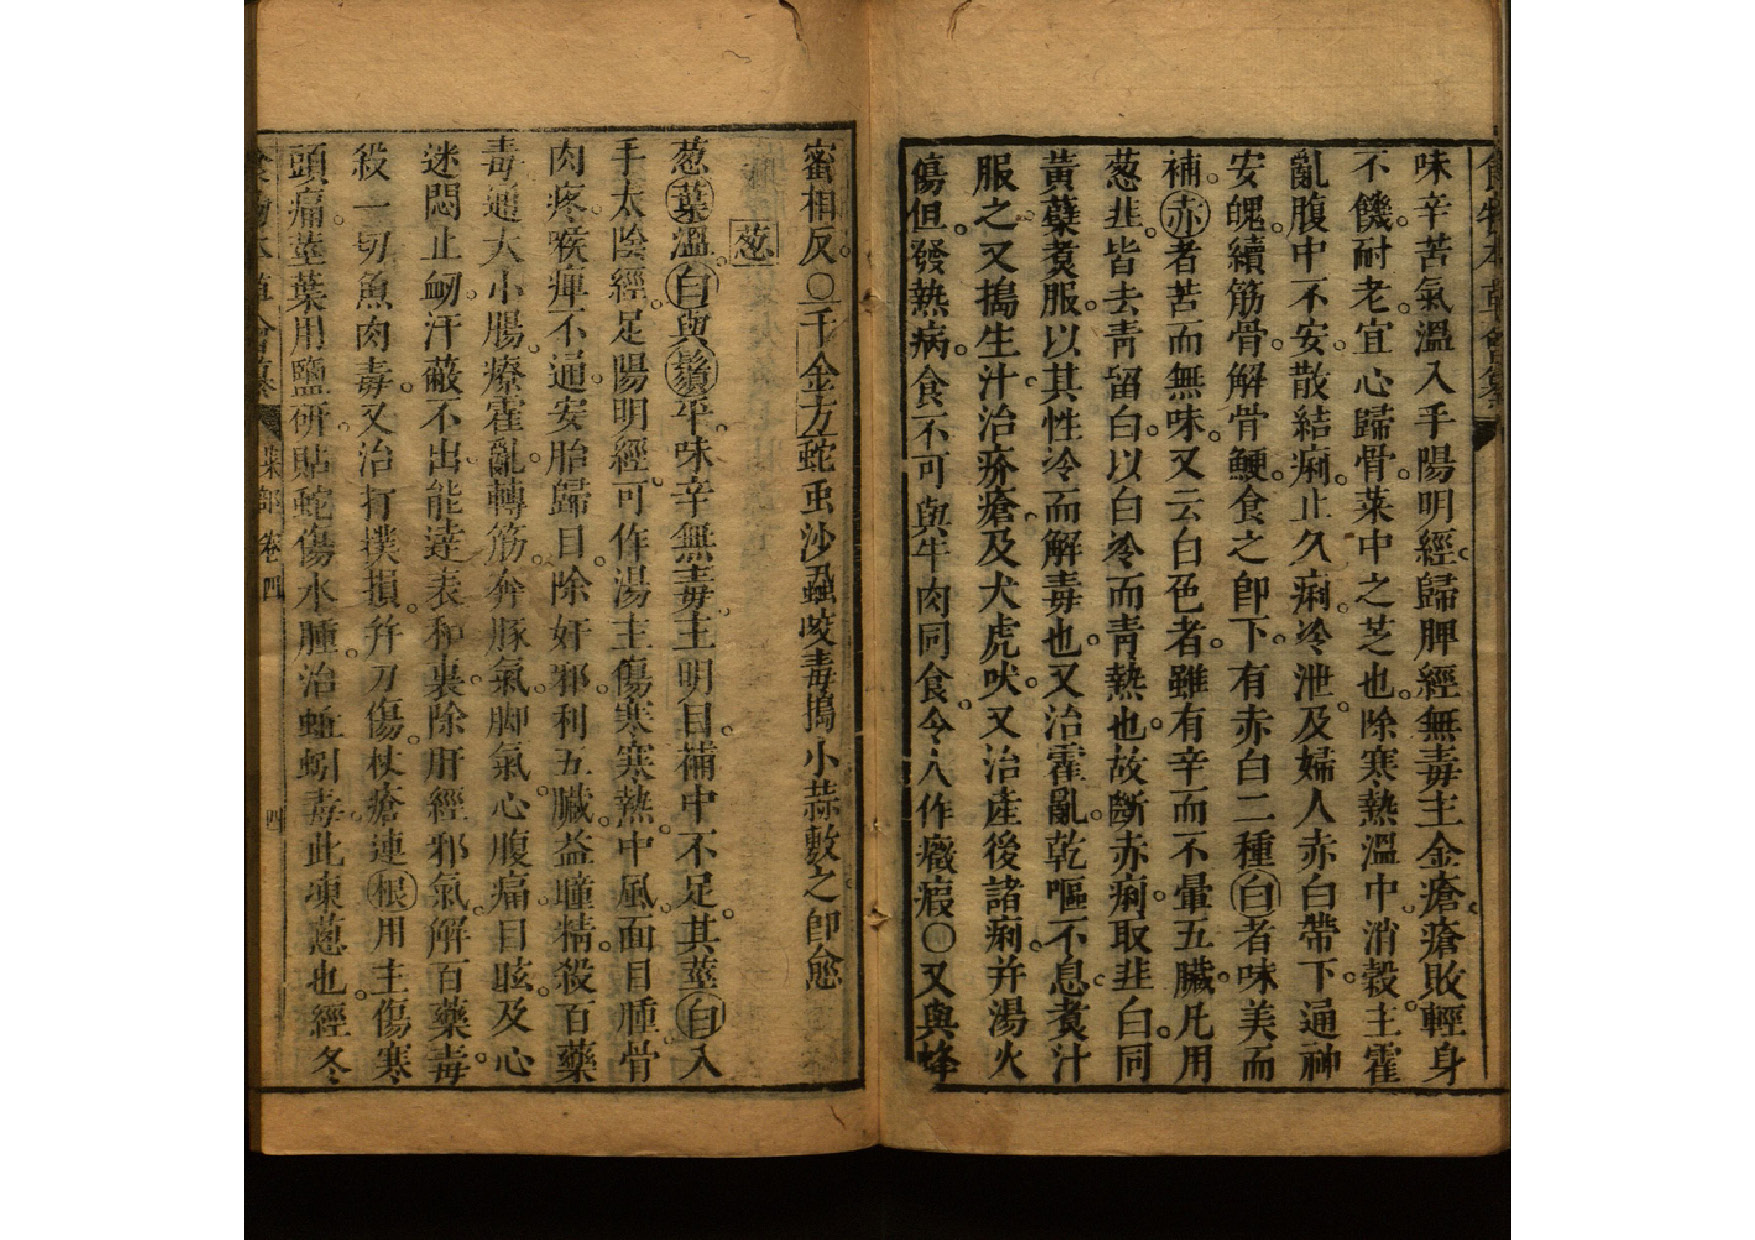 味辛苦氣溫入手陽明經。歸脾經無毒主金瘡。瘡敗輕身
不饑。耐老。宜心歸骨。菜中之芝也。除寒熱溫中。消穀。主霍
亂腹中不安。散結痢。止久痢。冷泄。及婦人赤白帶下。通神
安魄。續筋骨。解骨鯁。食之卽下。有赤白二種白者味美而
補。赤者苦而無味。又云白色者。雖有辛而不暈五臟。凡用
葱韭。皆去青留白。以白冷而青熱也。故斷赤痢。取韭白。同
黃蘗煑服。以其性冷而解毒也。又治霍亂。乾嘔不息。煑汁
服之。又搗生汁。治疥瘡。及犬虎吠。又治產後諸痢。并湯火
傷但。發熱病。食不可與牛肉同食。令人作癥瘕〇又與蜂
蜜相反。〇千金方蛇虫沙蝨咬毒搗小蒜敷之。卽愈
葱
葱葉溫。白與鬚平。味辛無毒。主明目。補中不足。其莖白入
手太陰經。足陽明經。可作湯主傷寒寒熱。中風。面目腫。骨
肉疼。喉痺不通。安胎歸目。除奸邪。利五臟。益瞳精。殺百藥
毒。通大小腸。療霍亂。轉筋。奔豚氣。脚氣。心腹痛。目眩。及心
迷悶。止衂。汗蔽不出。能達表和裏。除肝經邪氣。解百藥毒。
殺一切魚肉毒。又治打撲損。并刀傷。杖瘡連根用主傷寒
頭痛。莖葉用鹽研。貼蛇傷水腫。治蚯蚓毒。此凍葱也。經冬
食物本草會纂 菜部 卷四 四